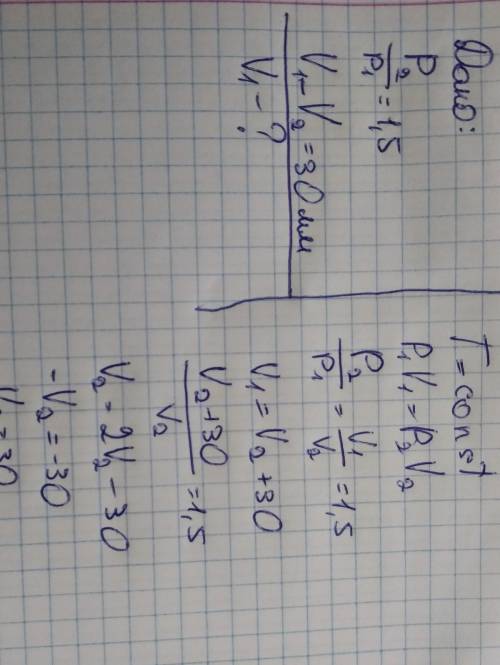 Дано:
p₂/p₁ = 1,5
V₁ - V₂ = 30 мл
V₁ - ?
T = const
p₁V₁ = p₂V₂
p₂/p₁ = V₁/V₂ = 1,5
V₁ = V₂ + 30
V₂ + 30/V₂ = 1,5
V₂ = 2V₂ - 30
-V₂ = -30